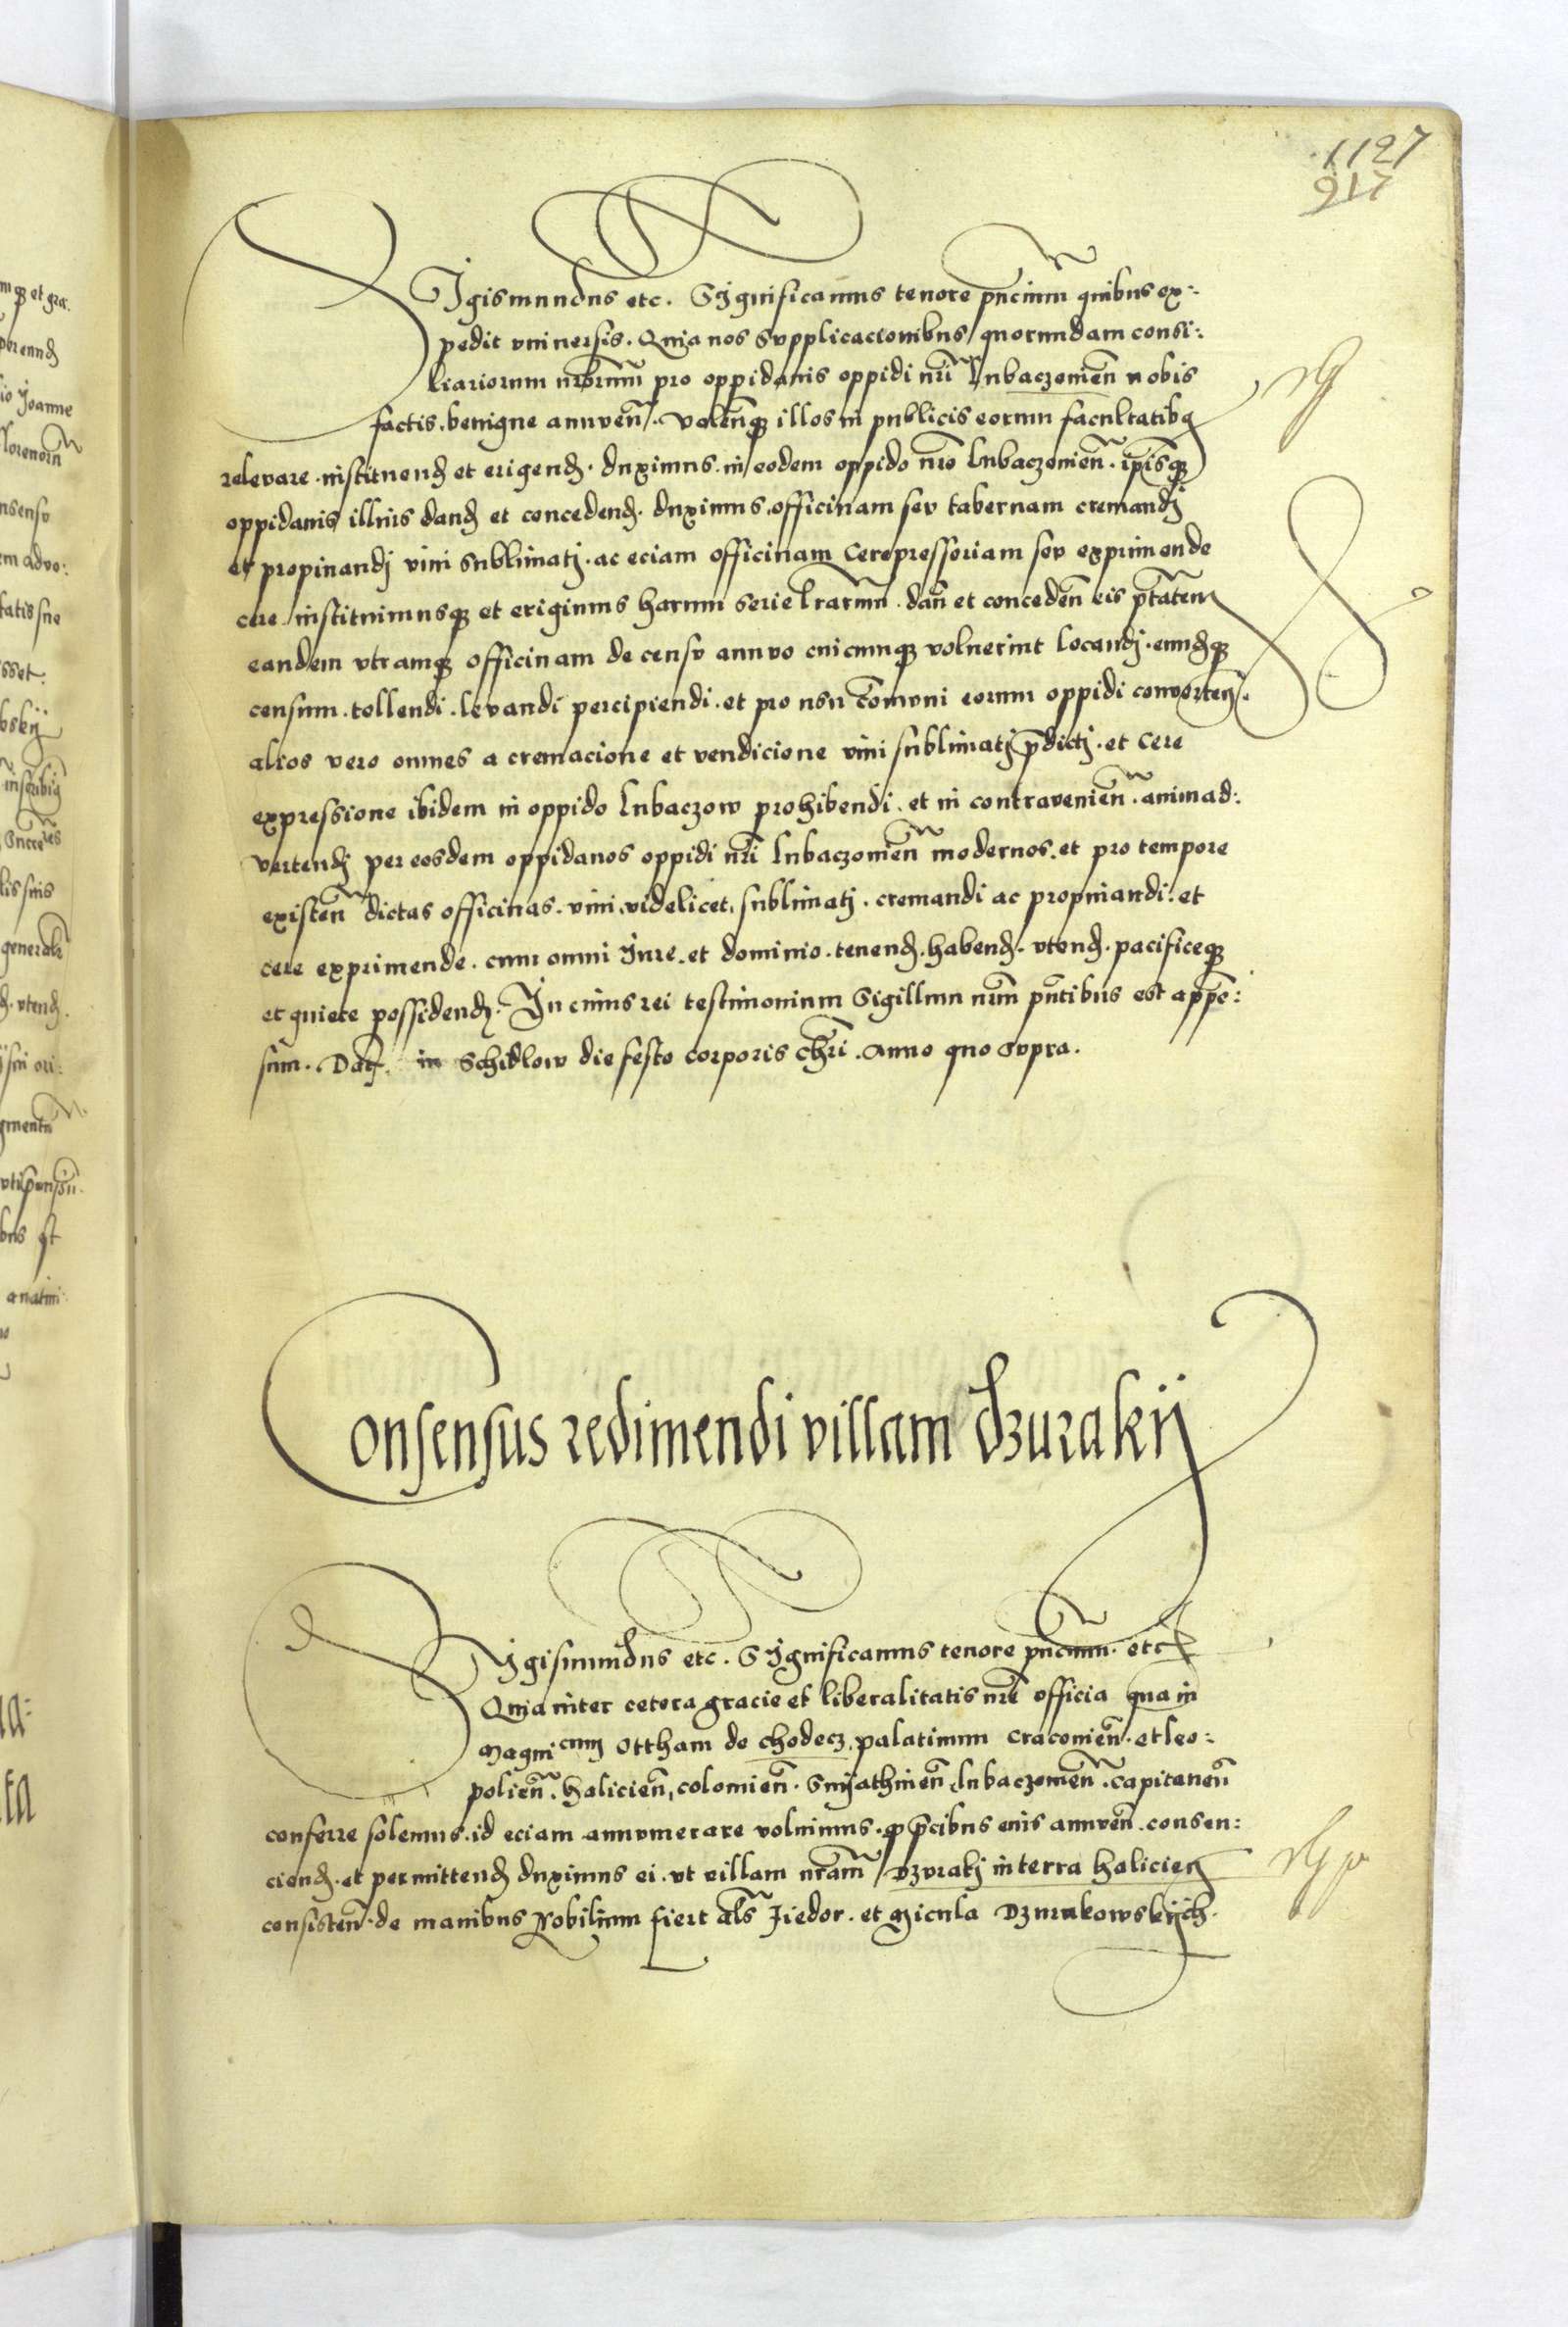 1127
917
SIgismundus etc. SIgnificamus tenore pñcium quibus ex:
pedit vniuersis. Quia nos supplicacionibus quorundam consi:
liariorum nrorum pro oppidanis oppidi nri Lubaczouien nobis
factis. benigne annuen. Volenqꝫ illos in publicis eorum facultatibꝯ
relevare. instituend et erigend. duximus. in eodem oppido nro Lubaczouien. ipisqꝫ
oppidanis illius dand et concedend. duximus officinam seu tabernam cremandj
et propinandj vini sublimatj. ac eciam officinam Cerepressoriam seu exprimende
cere. instituimusqꝫ et erigimus harum serie lrarum. dan et conceden eis ptatem
eandem vtramqꝫ officinam de censu annuo cuicunqꝫ voluerint locandj. eundqꝫ
censum. tollendi. levandi percipiendi. et pro usu comuni eorum oppidi converten.
alios vero omnes a cremacione et vendicione vini sublimatj pdictj. et Cere
expressione ibidem in oppido Lubaczow prohibendi. et in contravenien. animad:
vertendj per eosdem oppidanos oppidi nri Lubaczouien modernos. et pro tempore
existen dictas officinas. vini videlicet, sublimatj. cremandi ac propinandi. et
cere exprimende. cum omni Iure. et dominio. tenend. habend. vtend. pacificeqꝫ
et quiete possidend. In cuius rei testimonium Sigillum nrum pñtibus est appen:
sum. Dat. in Schidlow die festo corporis chri. Anno quo supra.
Consensus redimendi villam dzurakij
SIgismundus etc. SIgnificamus tenore pñcium. etc
Quia inter cetera gracie et liberalitatis nre officia que in
Magnicum Ottham de chodecz, palatinum Cracouien. et leo:
polien. halicien, colomien. Snyathinen Lubaczouien. Capitaneu
conferre solemus. id eciam annumerare voluimus. qꝫ pcibus eius annuen. consen:
ciend. et permittend duximus ei. vt villam nram Dzurakj in terra halicien
consisten. de manibus Nobilium fiert als Fiedor. et Micula Dzurakowskijch.